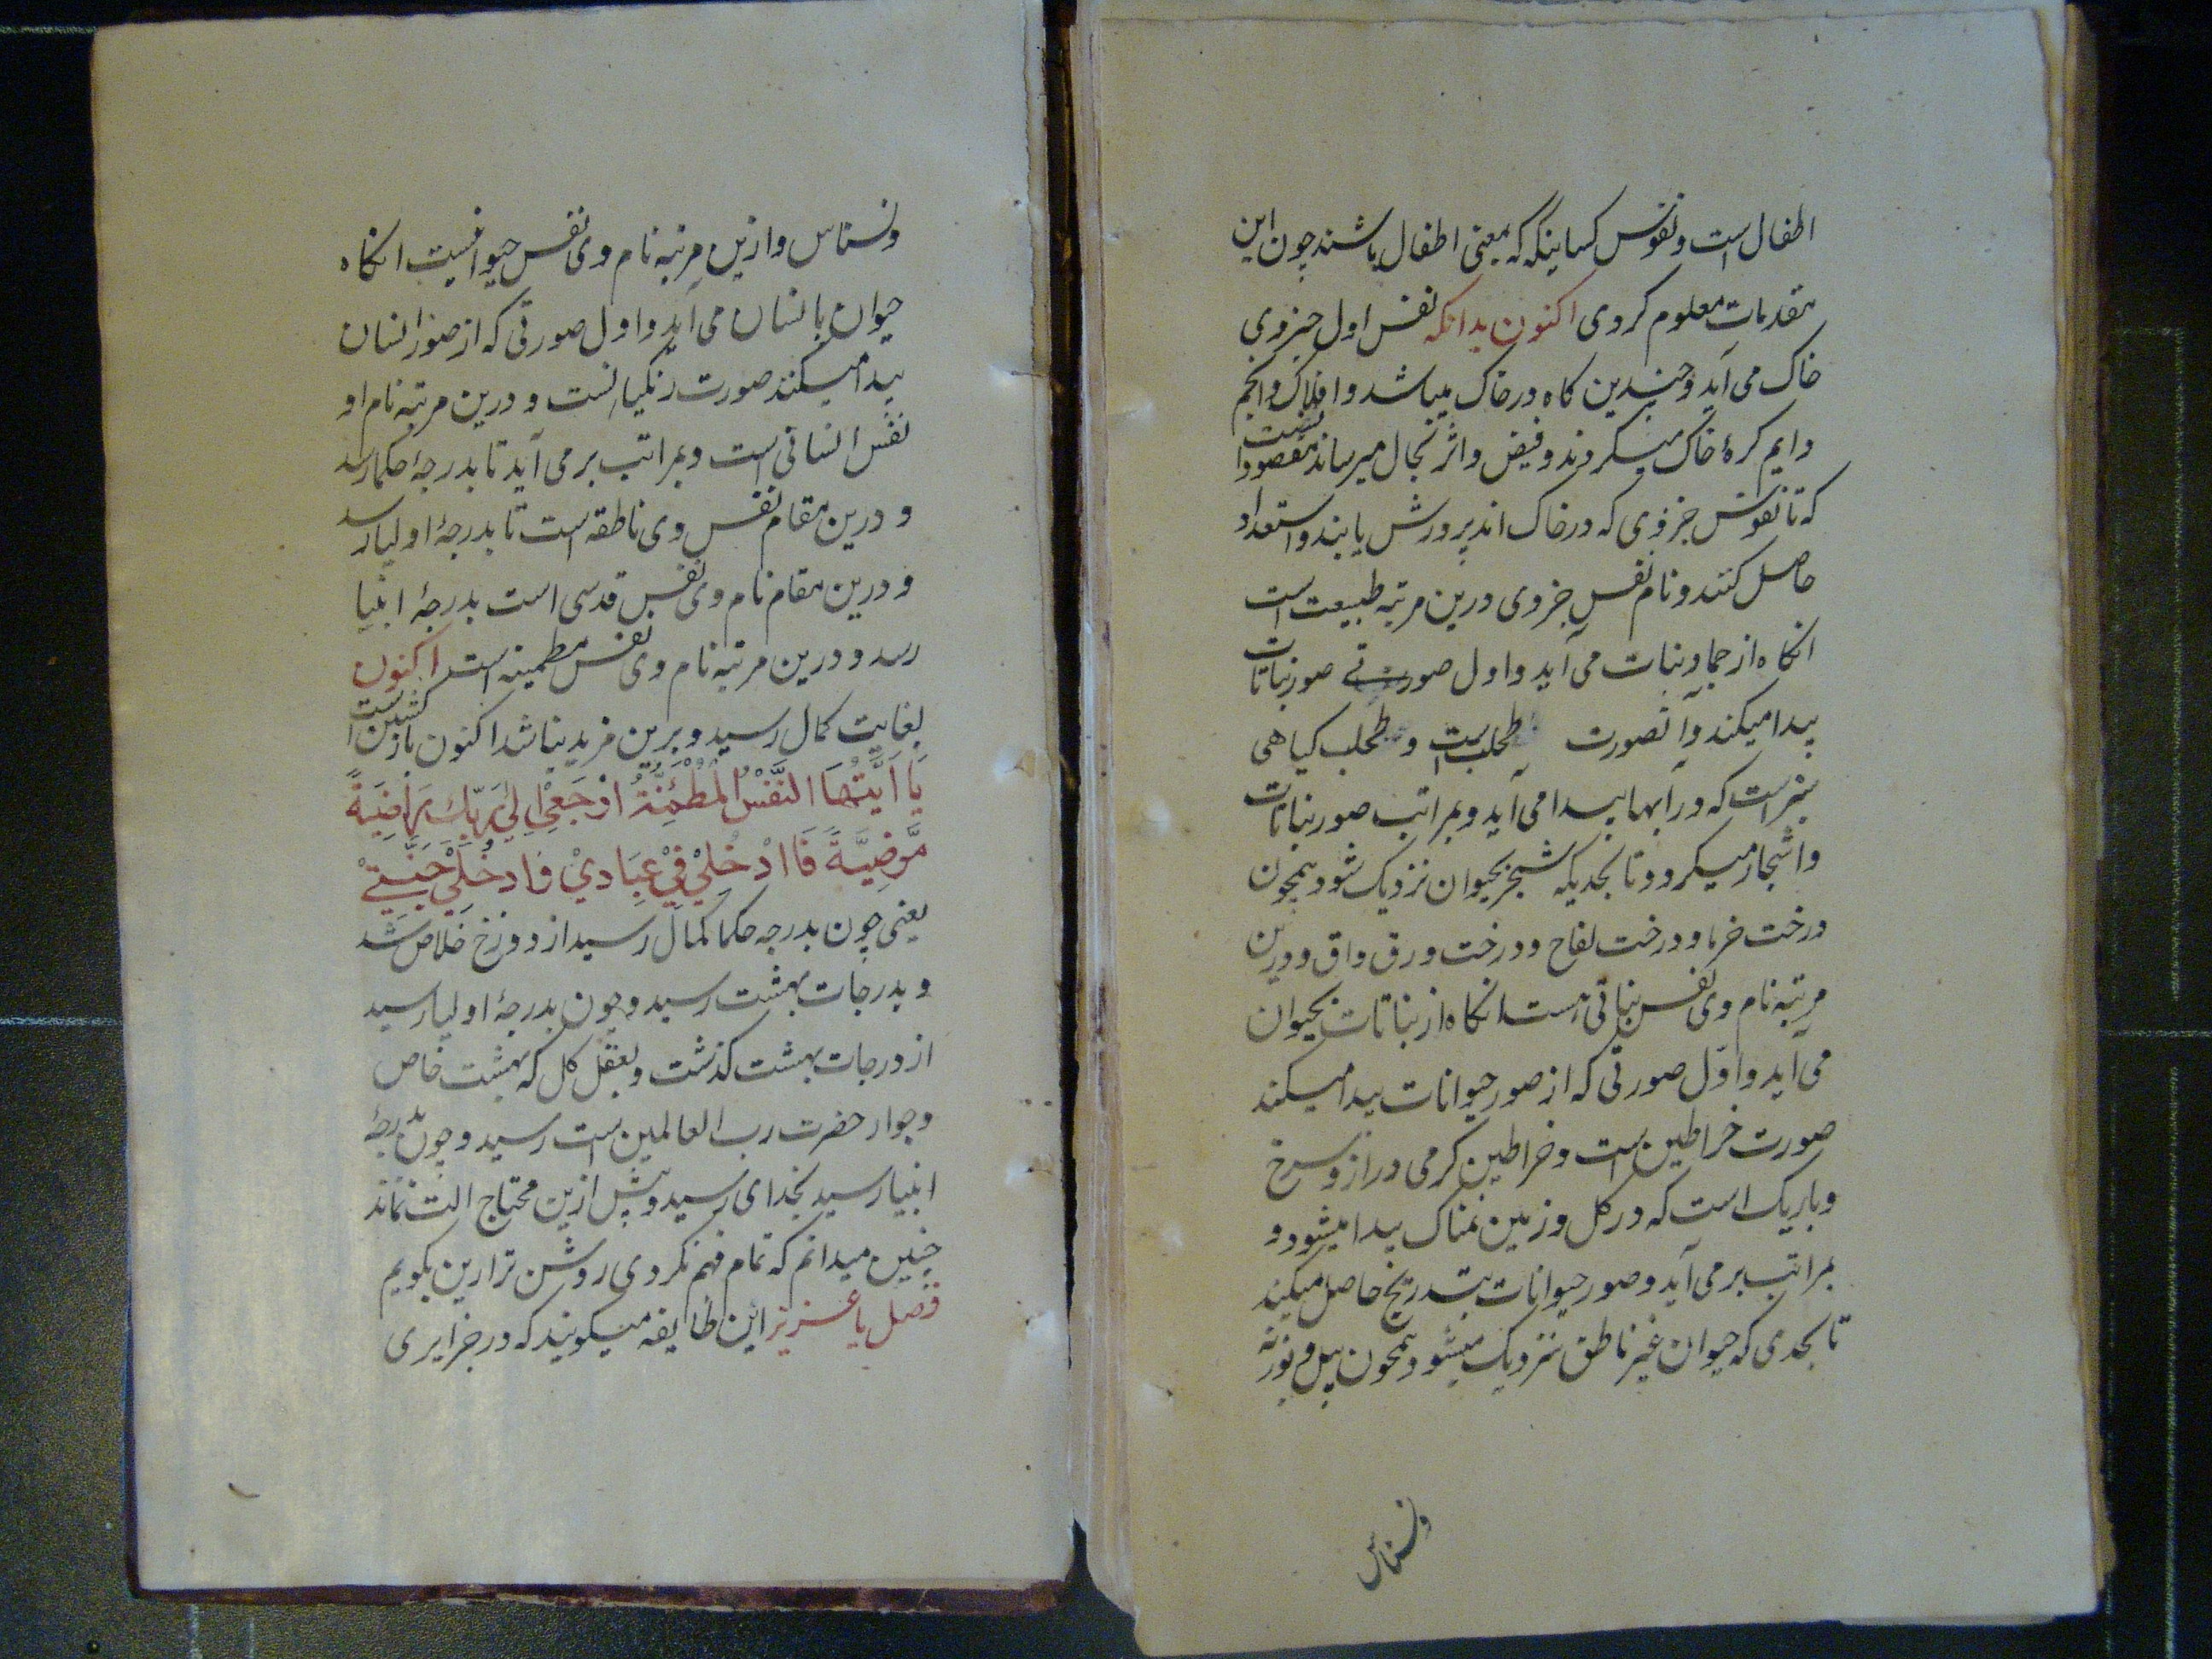 اطفال است و نفوس کسانیکه که بمعنی اطفال باشند چون این
مقدمات معلوم کردی اکنون بدانکه نفس اول جزوی
خاک می آید و چندین کاه در خاک میباشد و افلاک و انجم
دایم کرد کرۀ خاک میکردند و فیض و اثر بخاک میرسانند مقصود آنست
که تا نفوس جزوی که در خاک اند پرورش یابند و استعداد
حاصل کنند و نام نفس جزوی درین مرتبه طبیعت است
انکاه از جماد بنبات می آید و اول صورتی صور نباتات
پیدا میکند و آنصورت طحلب است و طحلب کیاهی
سبز است که در آبها پیدا می آید و بمراتب صور نباتات
و اشجار میکیرد و تا بحدیکه شجر بحیوان نزدیک شود همچون
درخت خرما و درخت لفاح و درخت ورق واق و درین
مرتبه نام وی نفس نباتی است انکاه از نباتات بحیوان
می آید و اوّل صورتی که از صور حیوانات پیدا میکند
صورت خراطین است و خراطین کرمی دراز و سرخ
و باریک است که در کل و زمین نمناک پیدا میشود و
بمراتب بر می آید و صور حیوانات بتدریج حاصل میکند
تا بحدی که حیوان غیر ناطق نزدیک میشود همچون پیل و بوزنه
ونسناس
ونسناس وازین مرتبه نام وی نفس حیوانیست انکاه
حیوان بانسان می آید و اول صورتی که از صور انسان
پیدا میکند صورت زنکیانست و درین مرتبه نام او
نفس انسانی است و بمراتب بر می آید تا بدرجۀ حکما رسد
و درین مقام نفس وی ناطقه است تا بدرجۀ اولیا رسد
و درین مقام نام وی نفس قدسی است بدرجۀ انبیا
رسد و درین مرتبه نام وی نفس مطمینه است اکنون
بغایت کمال رسید و برین مزید نباشد اکنون بازکشتن است
يَا اَيَّتُهَا النَّفْسُ الْمُطْمَئِنَّةُ ارْجِعِي اِلىٰ رَبِّكِ رَاضِيَةً
مَّرْضِيَّةً فَاادْخُلِيْ فِيْ عِبَادِيْ وَادخُلِيْ جَنَّتِيْ
یعنی چون بدرجه حکما کمال رسید از دوزخ خلاص شد
و بدرجات بهشت رسید و چون بدرجۀ اولیا رسید
از درجات بهشت کذشت و بعقل کل که بهشت خاص
و جوار حضرت رب العالمین است رسید و چون بدرجۀ
انبیا رسید بخدای رسید و پیش ازین محتاج الت نماند
چنین میدانم که تمام فهم نکردی روشن تر ازین بکویم
فصل یا عزیز این طایفه میکویند که در جزایری